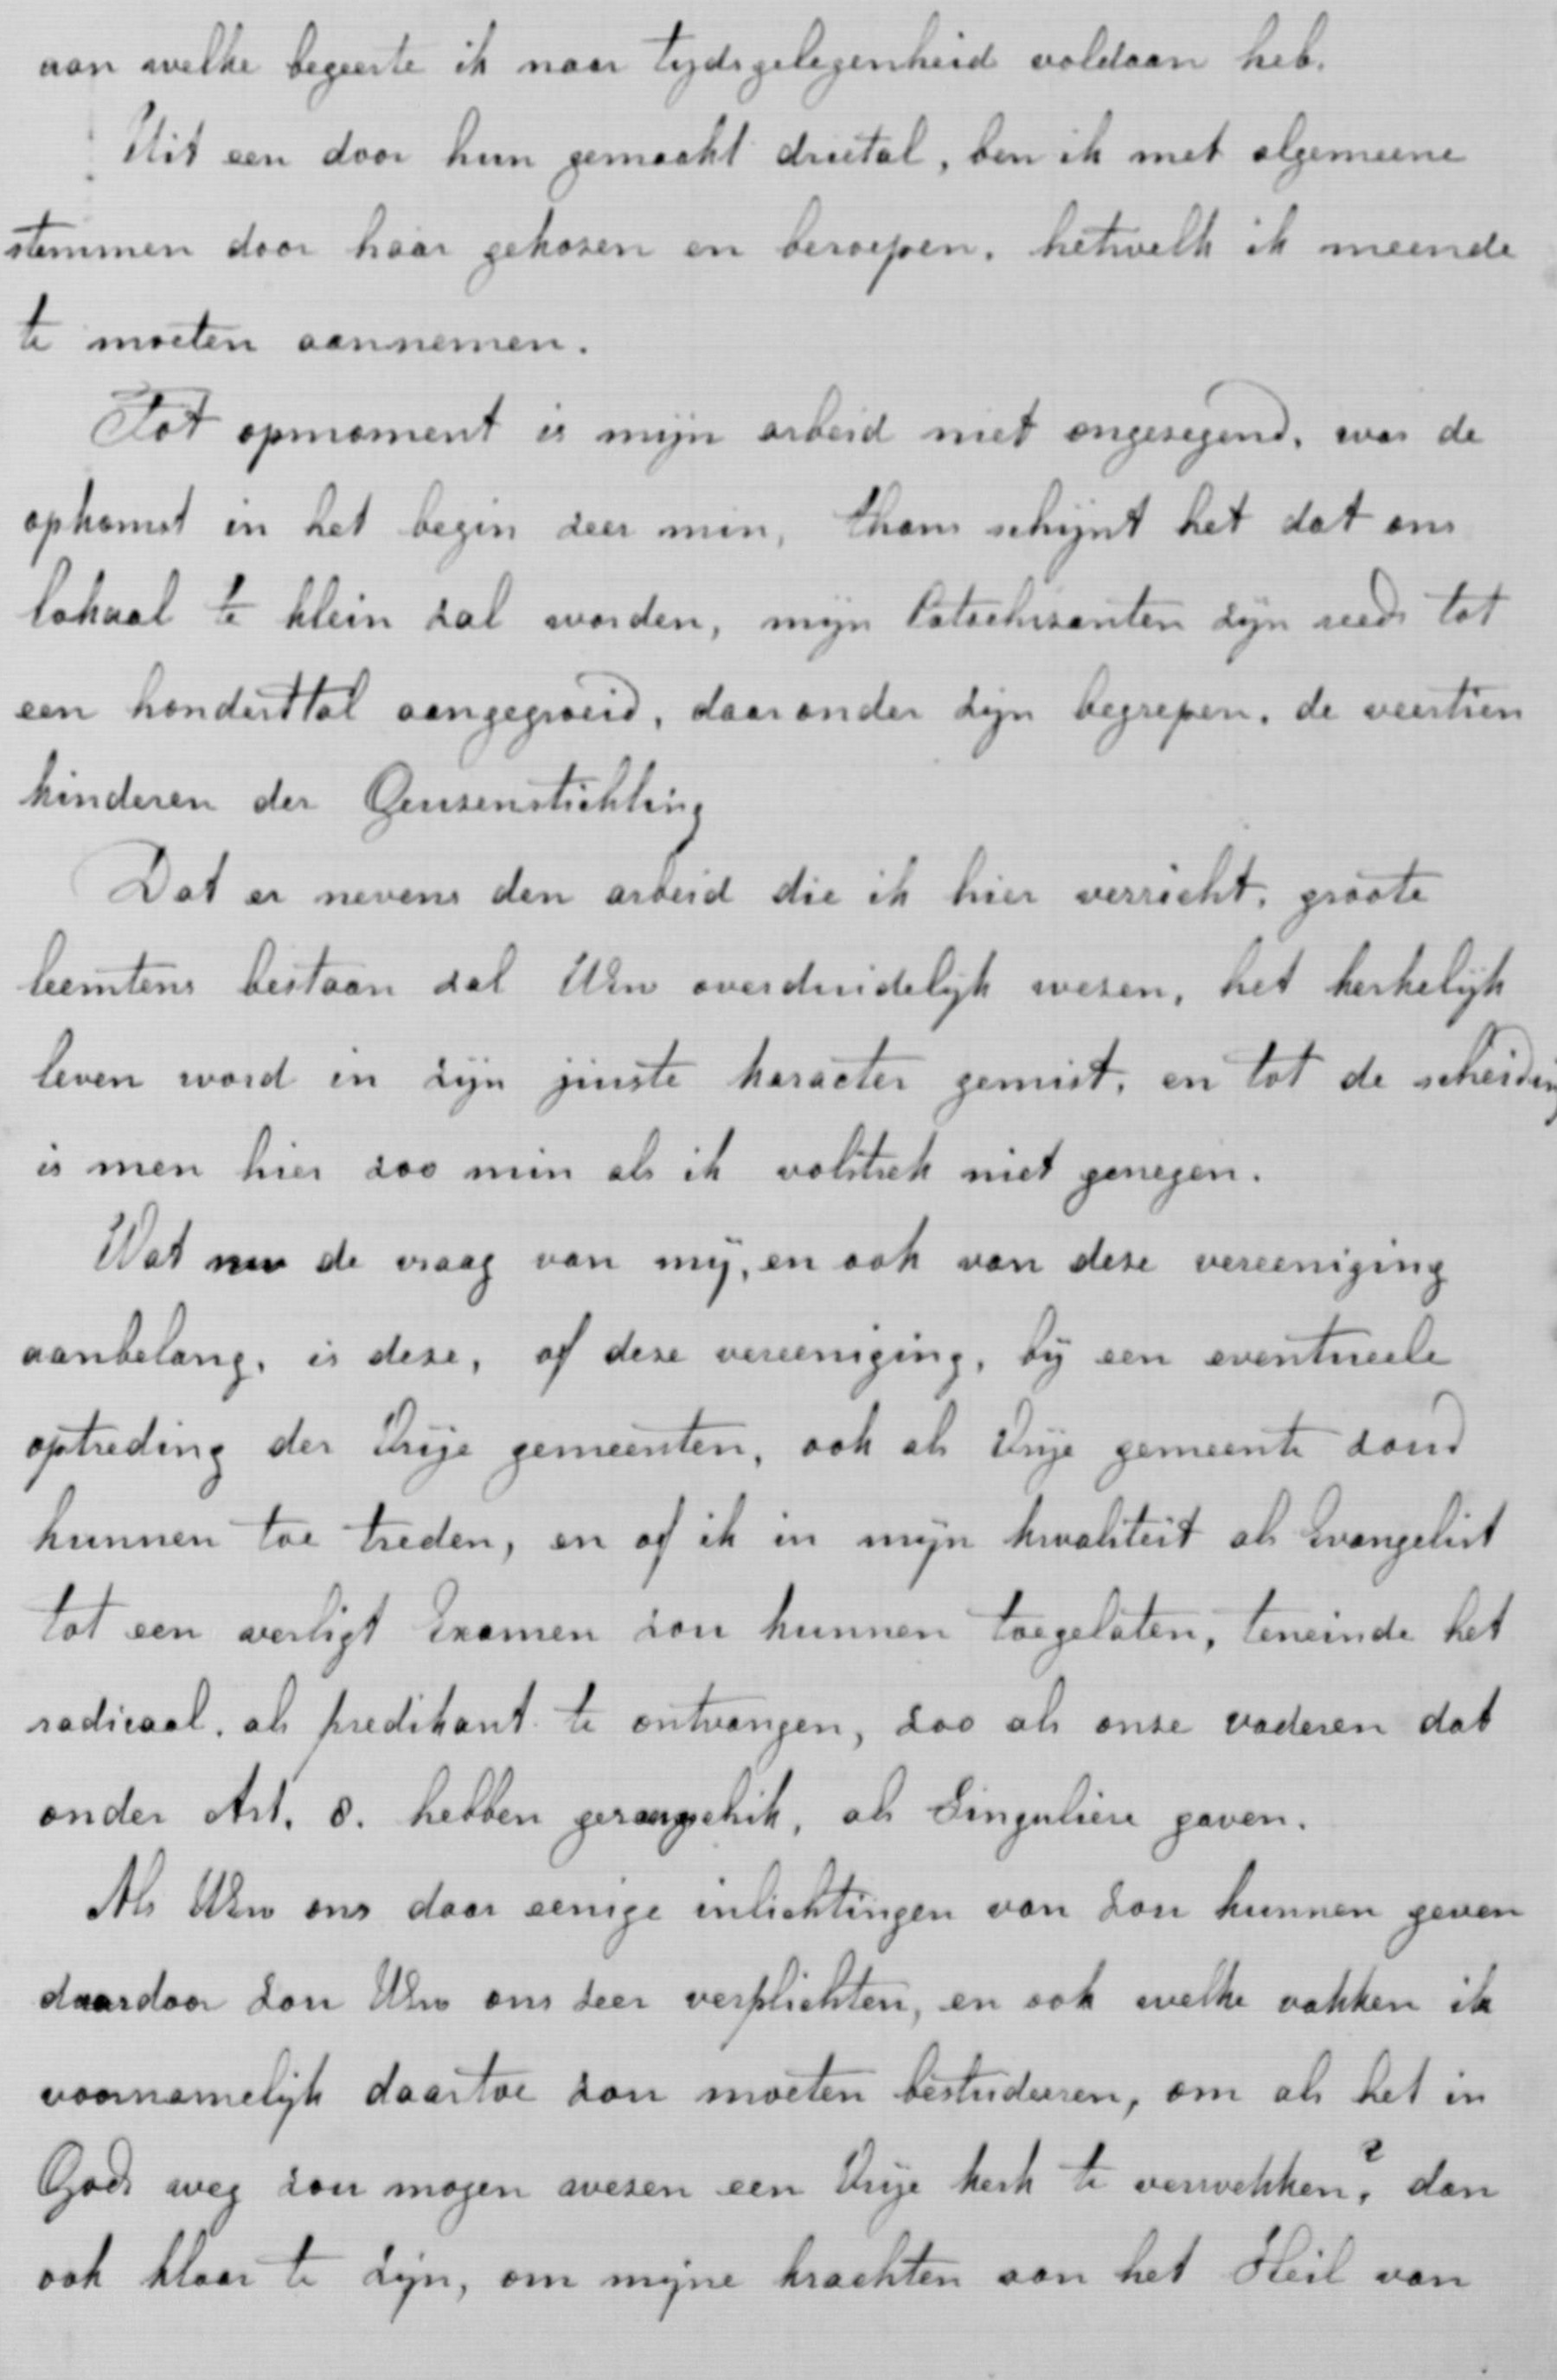 aan welke begeerte ik naar tydsgelegenheid voldaan heb.
Uit een door hun gemaakt drietal, ben ik met algemeene
stemmen door haar gekozen en beroepen. hetwelk ik meende
te moeten aannemen.
Tot opmoment is mijn arbeid niet ongezegend. was de
opkomst in het begin zeer min, thans schijnt het dat ons
lokaal te klein zal worden, mijn Catechisanten zijn reeds tot
een honderttal aangegroeid, daaronder zijn begrepen. de veertien
kinderen der Geuzenstichting
Dat er nevens den arbeid die ik hier verricht, groote
leemtens bestaan zal UEw overduidelijk wezen, het kerkelijk
leven word in zijn juiste karacter gemist, en tot de scheiding
is men hier zoo min als ik volstrek niet genegen.
Wat nu de vraag van mij, en ook van deze vereeniging
aanbelang, is deze, of deze vereeniging, bij een eventueele
optreding der Vrije gemeenten, ook als Vrije gemeente zoud
kunnen toe treden, en of ik in mijn kwaliteit als Evangelist
tot een verligt Examen zou kunnen toegelaten, teneinde het
radicaal. als predikant te ontvangen, zoo als onze vaderen dat
onder Art. 8. hebben gerangschik, als Singuliere gaven.
Als UEw ons daar eenige inlichtingen van zou kunnen geven
daardoor zou UEw ons zeer verplichten, en ook welke vakken ik
voornamelijk daartoe zou moeten bestudeeren, om als het in
Gods weg zou mogen wezen een Vrije kerk te verwekken? dan
ook klaar te zijn, om mijne krachten aan het Heil van